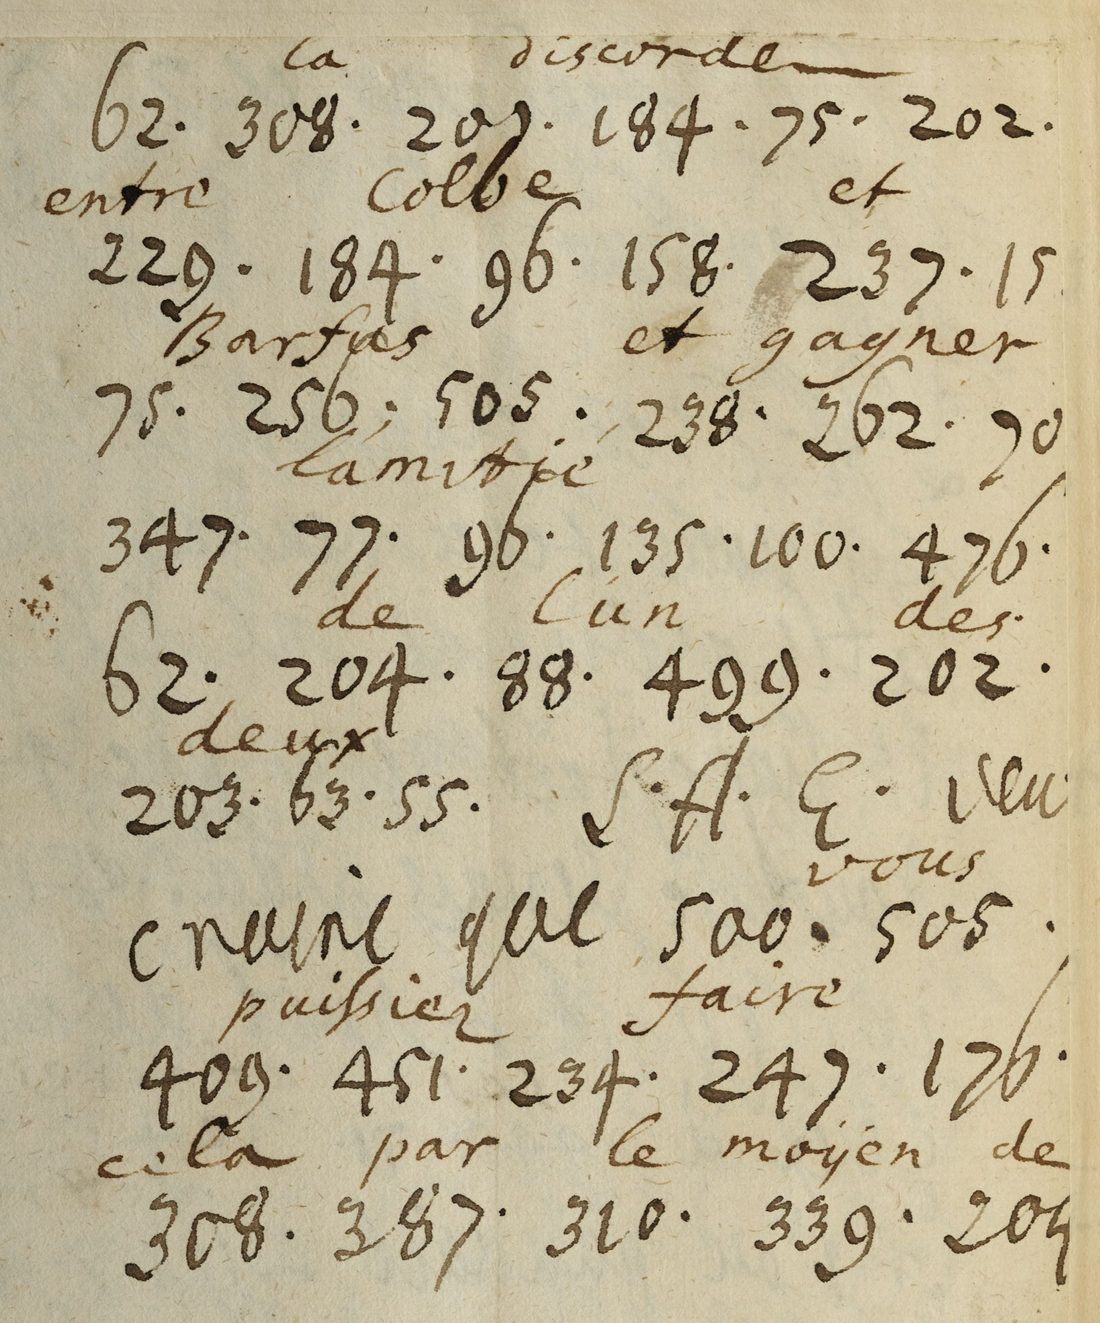 la discorde
62. 308. 207. 184. 75. 202.
entre Colbe et
229. 184. 96. 158. 237. 15
Barfus et gagner
75. 256. 505. 238. 262. 70
lamitié
347. 77. 96. 135. 100. 476.
de lún des
62. 204. 88. 499. 202.
deux
203. 63. 55. S. A. E. veu
vous
craint que 500. 505.
puissiez faire
409. 451. 234. 247. 176.
cela par le moÿen de
308. 387. 310. 339. 204